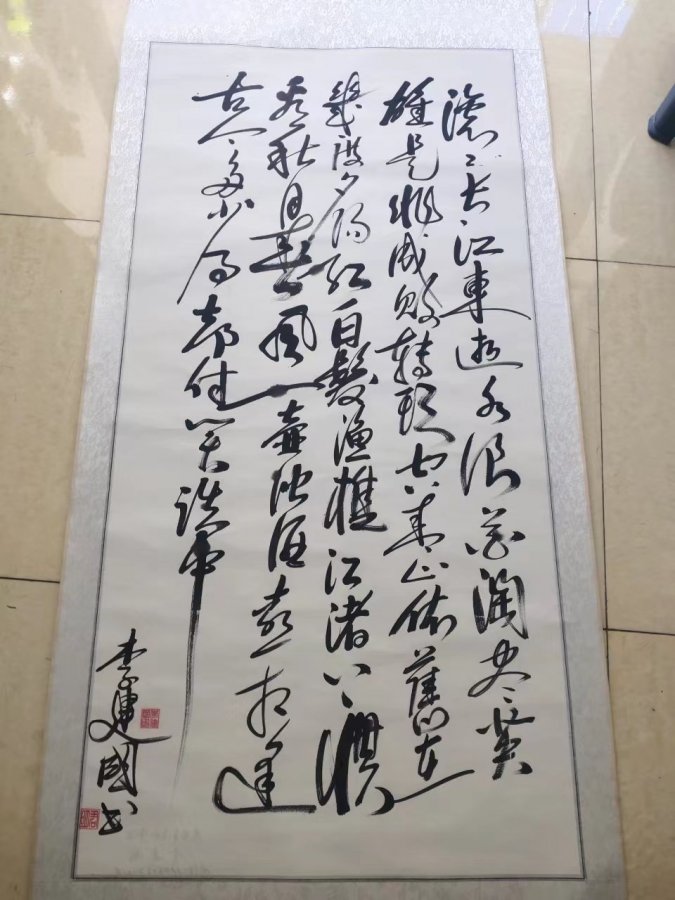 滚滚长江東逝水浪花淘尽英
雄是非成败转頭空青山依舊在
幾度夕阳红白髮渔樵江渚上惯
看秋月春風一壶浊酒喜相逢
古今多少事都付笑谈中
李建國书